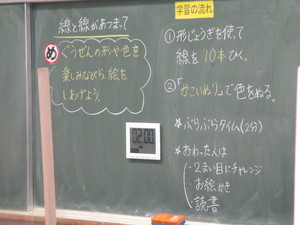 線と線があつまって
め
ぐうぜんの形や色を
楽しみながら、絵を
しあげよう。
02:00
学習の流れ
①形じょうぎを使って
線を10本ひく。
②「かこいぬり」で色をぬる。
*ぶらぶらタイム(2分)
*おわった人は
・2まい目にチャレンジ
・お絵かき
・読書